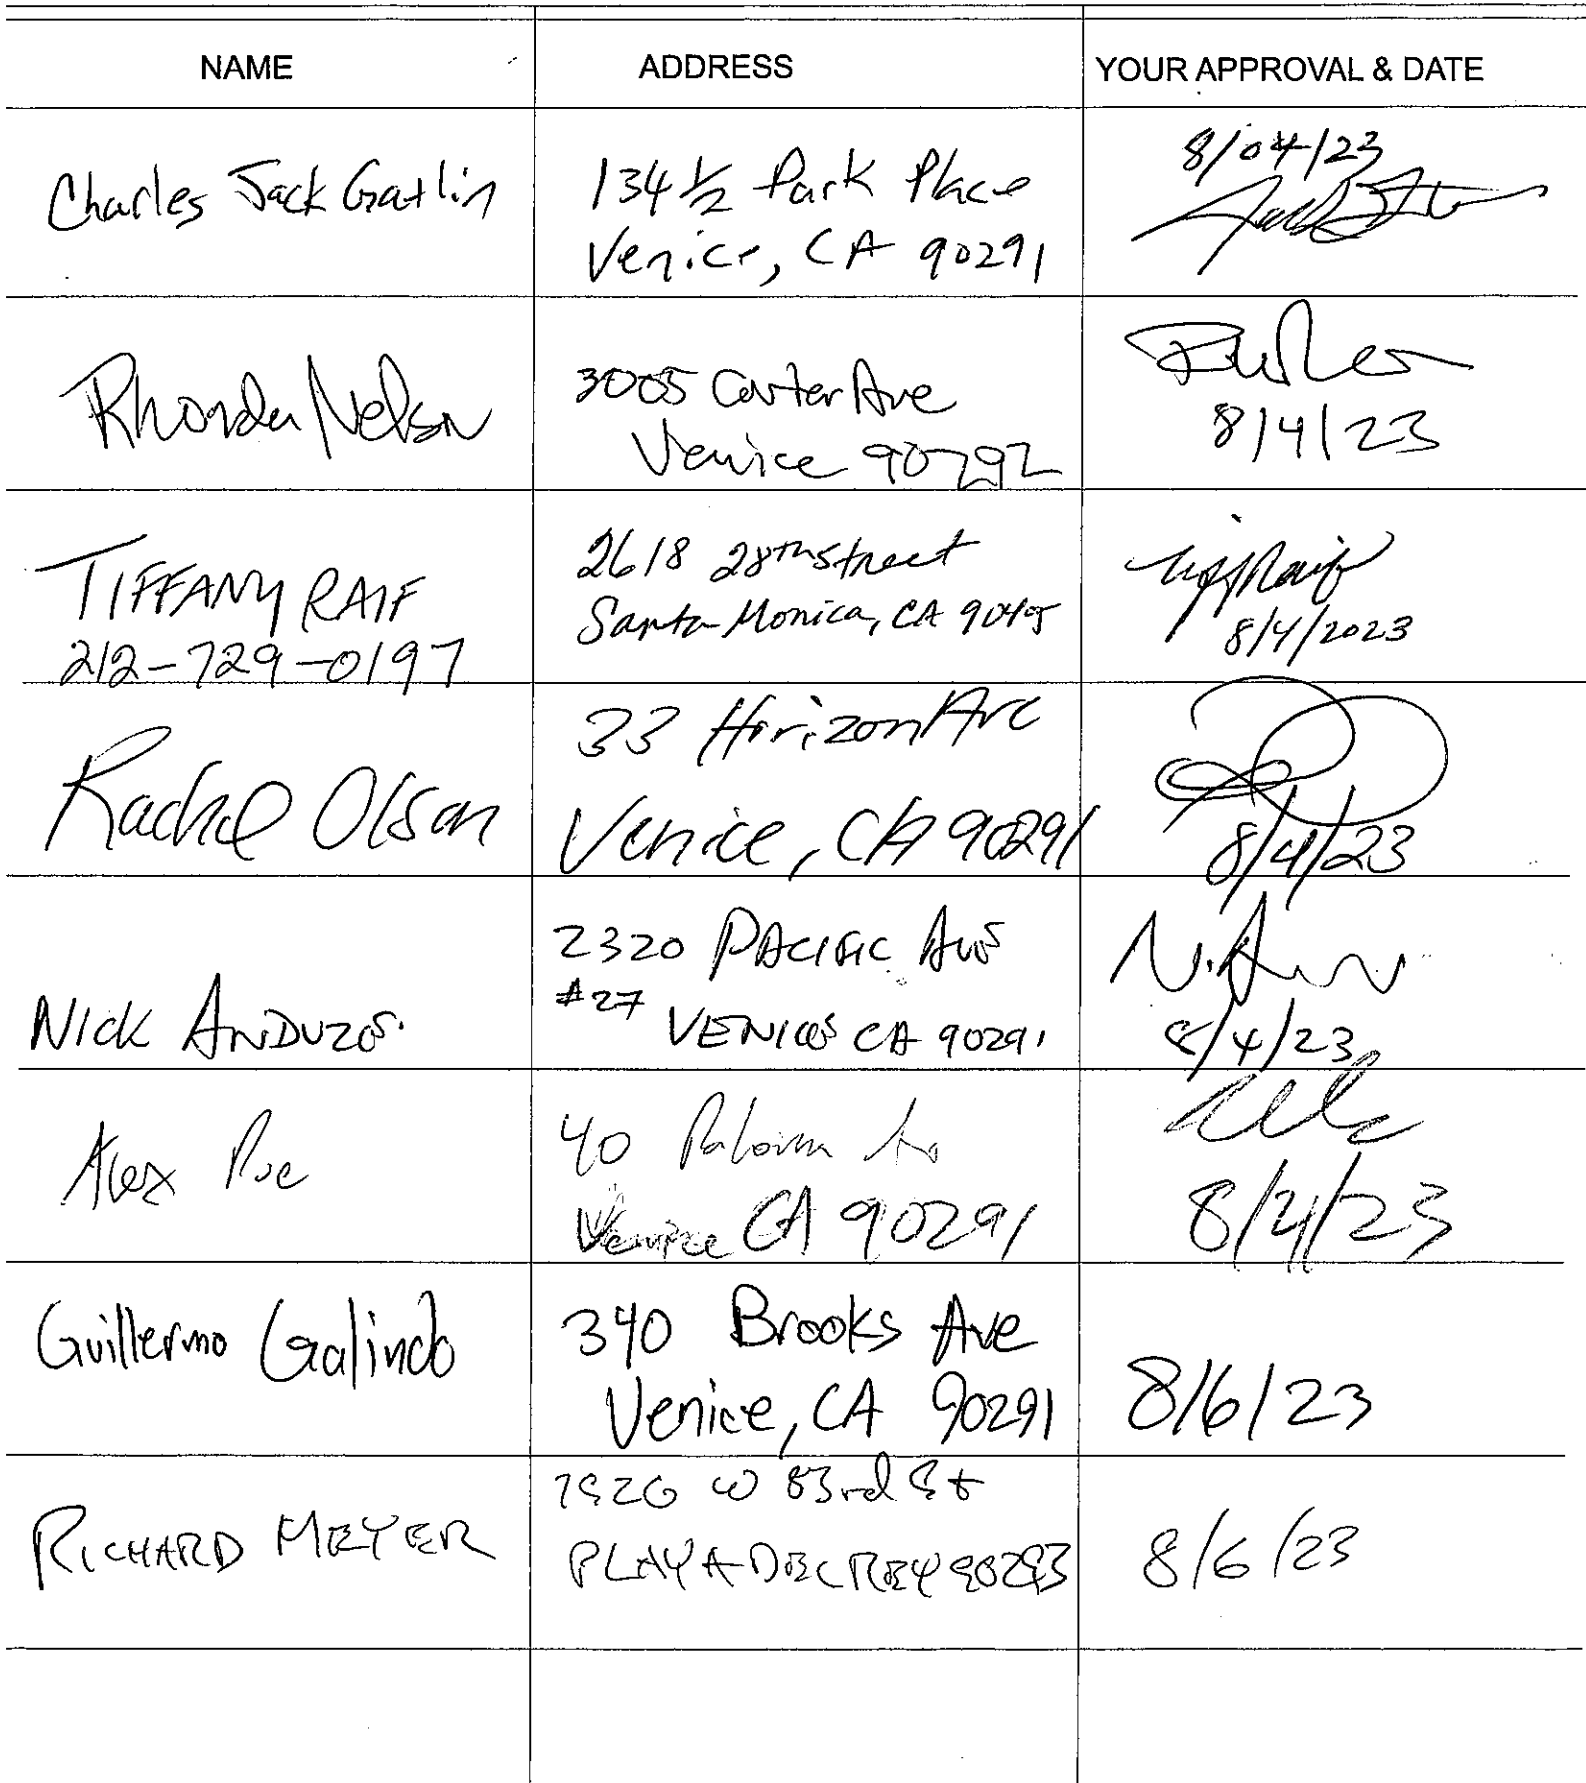 NAME ADDRESS YOUR APPROVAL & DATE
Charles Jack Gatlin
134 1/2 Park Place
Venice, CA 90291
8/04/23
Rhonda Nelson
3005 Carter Ave
Venice 90292
8/4/23
TIFFANY RAIF
212-729-0197
2618 28th Street
Santa Monica, CA 90405
8/4/2023
Rachel Olson
33 Horizon Ave
Venice, CA 90291
8/4/23
NICK ANDUZE
2320 PACIFIC AVE
#27 VENICE CA 90291
8/4/23
Alex
40 Paloma
Venice CA 90291
8/4/23
Guillermo Galindo
340 Brooks Ave
Venice, CA 90291
8/6/23
RICHARD MEYER
W 83rd St
PLAYA DEL REY 90293
8/6/23